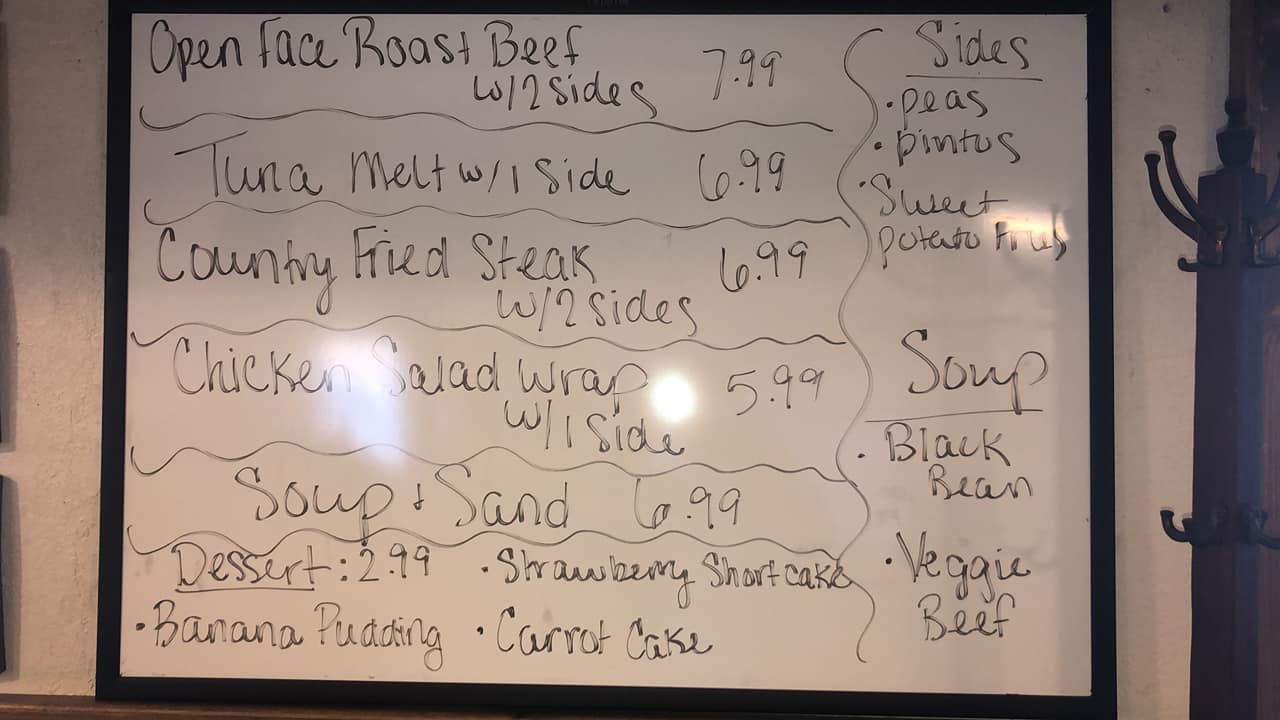 Open Face Roast Beef
w/2 sides 7.99
Tuna Melt w/1 Side 6.99
Country Fried Steak 6.99
w/2 sides
Chicken Salad Wrap 5.99
w/1 Side
Soup + Sand 6.99
Dessert: 2.99 • Strawberry Shortcake
• Banana Pudding • Carrot Cake
Sides
• peas
• pintos
• Sweet
potato Fries
Soup
• Black
Bean
• Veggie
Beef